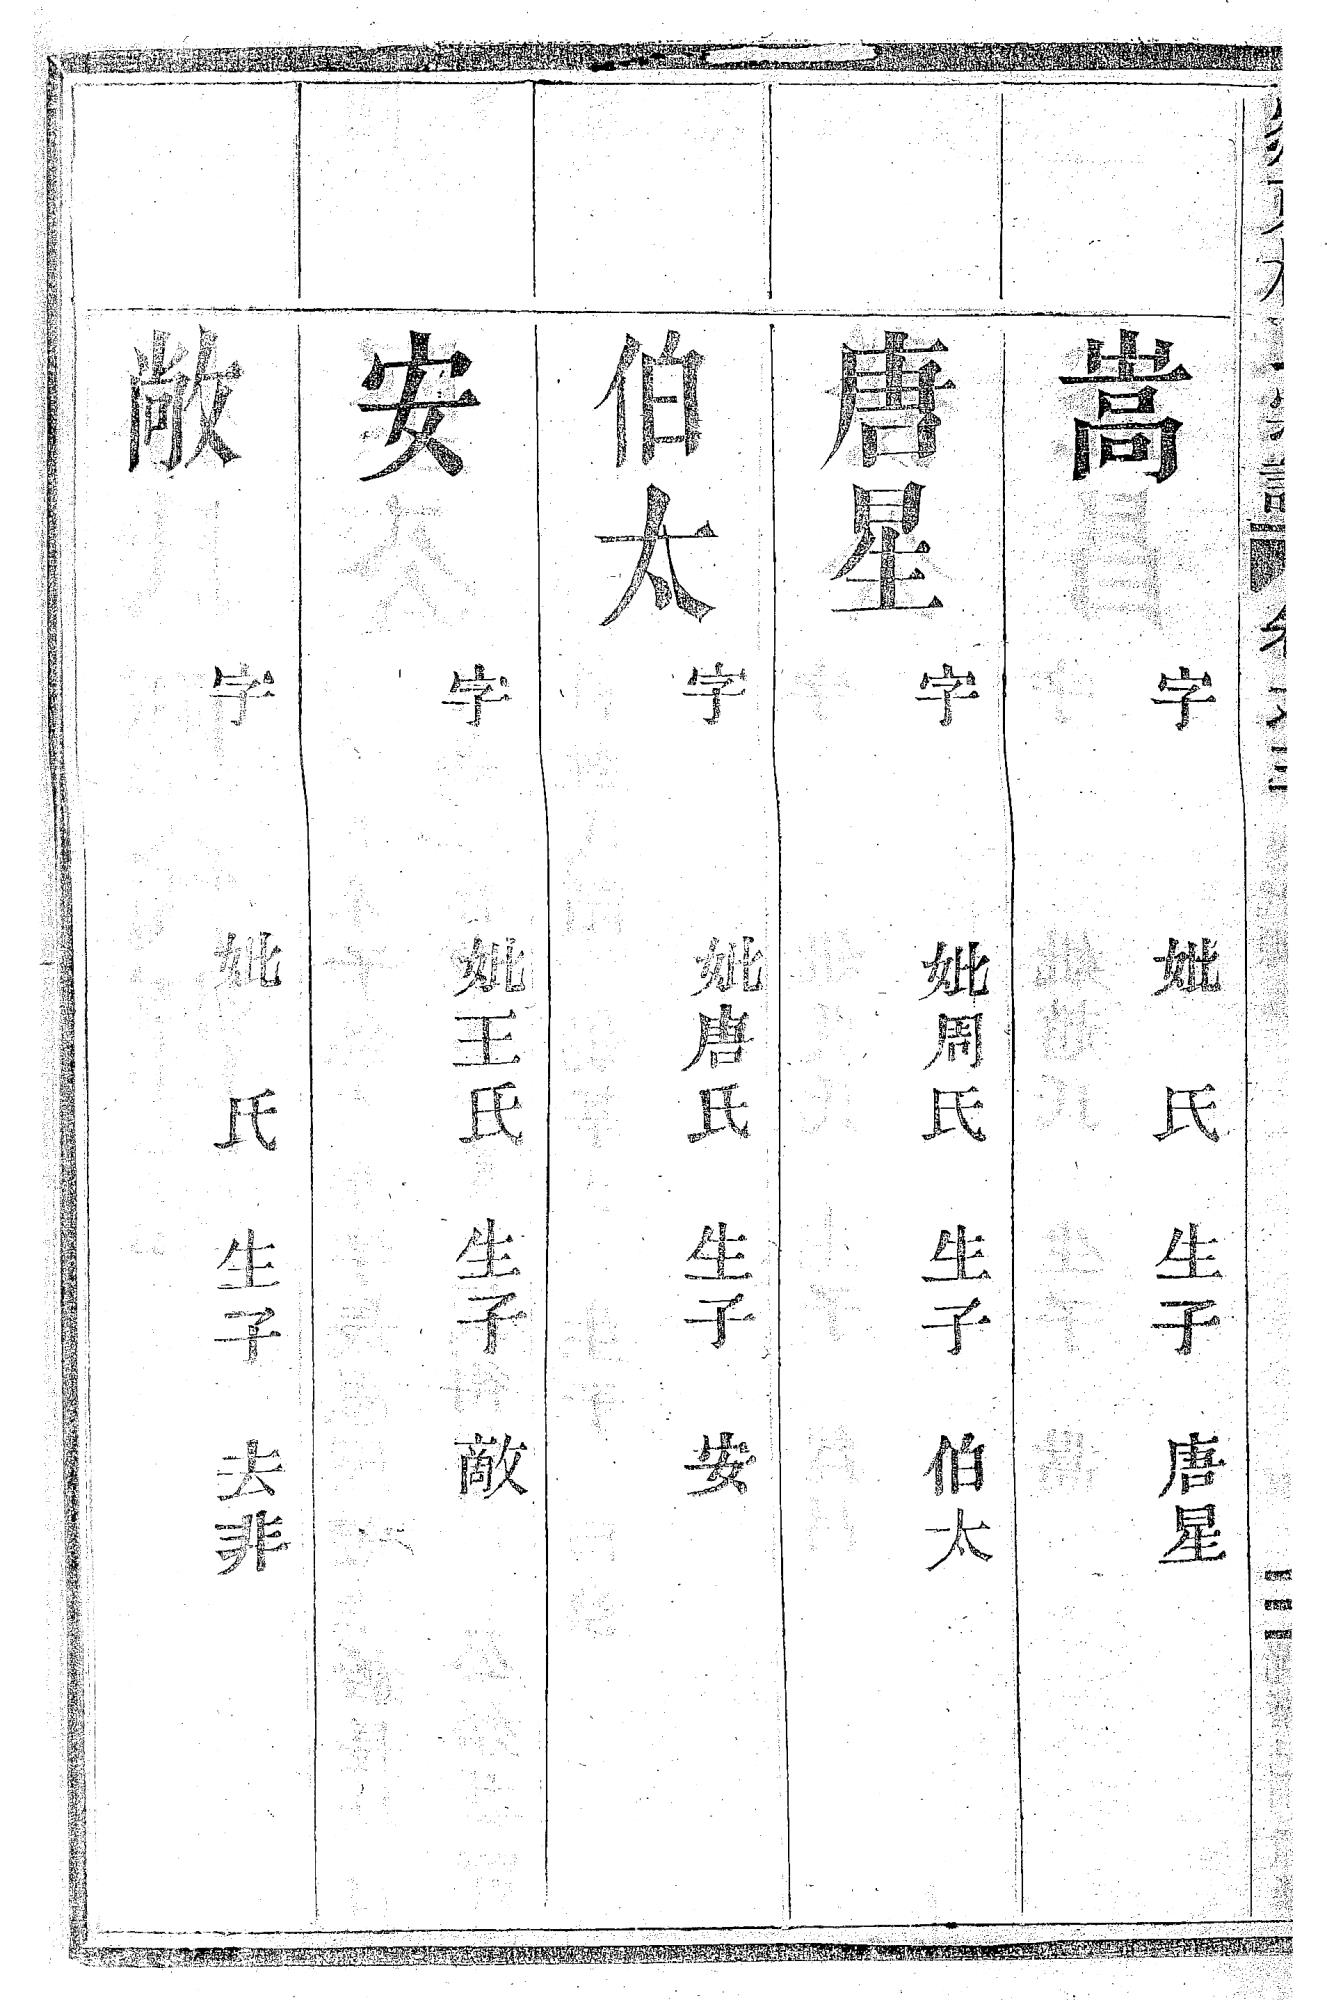 嵩 字 妣 氏 生子 唐星
唐星 字 妣周氏 生子 伯太
伯太 字 妣唐氏 生子 安
安 字 妣王氏 生子 敵
敞 字 妣 氏 生子 去非